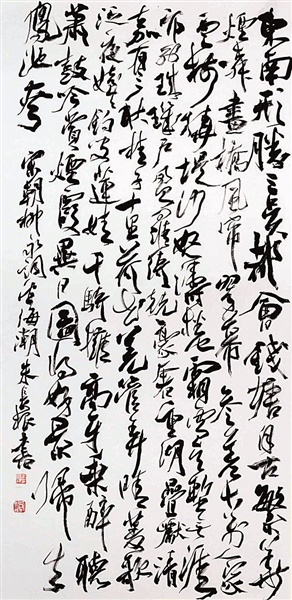 東南形勝三吳都會錢塘自古繁華
煙柳畫橋風簾翠幕參差十萬人家
雲樹繞堤沙怒濤捲霜雪天塹無涯
市列珠璣戶盈羅綺競豪奢重湖疊巘清
嘉有三秋桂子十里荷花羌管弄晴菱歌
泛夜嬉嬉釣叟蓮娃千騎擁高牙乘醉聽
簫鼓吟賞煙霞異日圖將好景歸去
鳳池夸
宋朝柳永詞望海潮朱長振書